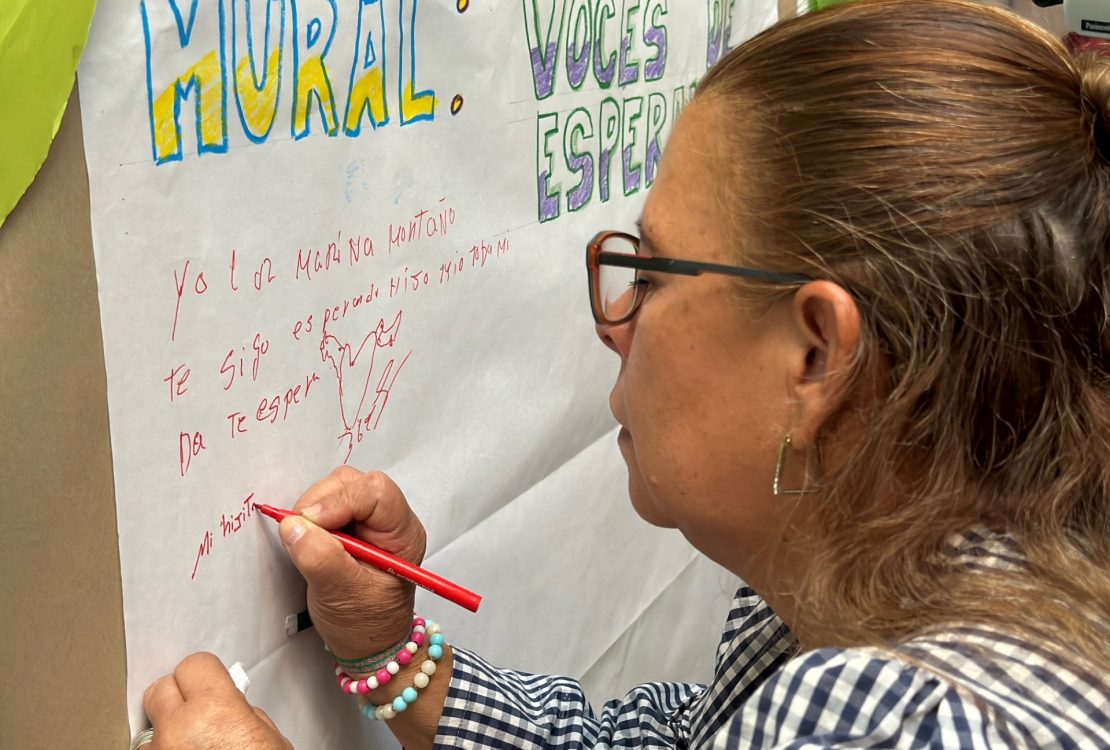 MURAL:
VOCES DE
ESPERA
Yo luz MaRiNa MoNtaño
te sigo esperando Hijo Mio toda Mi
Da Te espera
Mi hijito